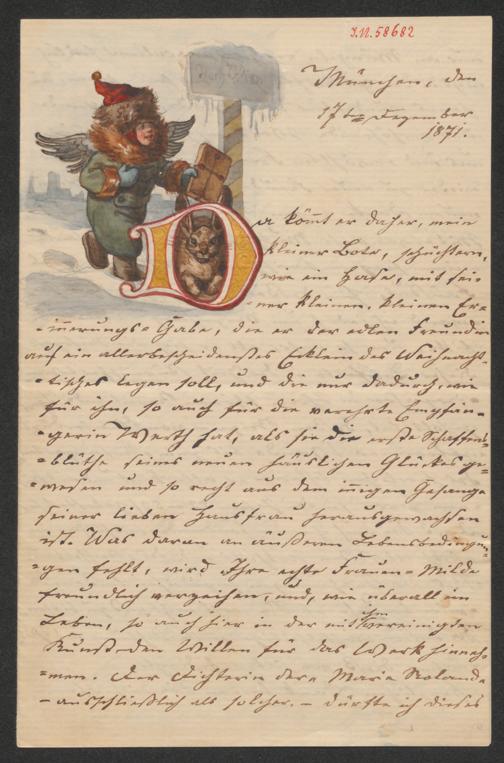 I.N. 58682
München, den
17ten Dezember
1871.
Da kömt er daher, mein
kleiner Bote, schüchtern,
wie ein Hase, mit sei-
ner kleinen, kleinen Er-
-innerungs-Gabe, die er der edlen Freundin
auf ein allerbescheidenstes Ecklein des Weihnachts-
-tisches legen soll, und die nur dadurch, wie
für ihn, so auch für die verehrte Empfän-
-gerin Werth hat, als sie die erste Schaffens-
-blüthe seines neuen häuslichen Glückes ge-
-wesen und so recht aus dem innigen Gesange
seiner lieben Hausfrau herausgewachsen
ist. Was daran an äußeren Lebensbedingun-
-gen fehlt, wird Ihre echte Frauen-Milde
freundlich verzeihen, und, wie überall im
Leben, so auch hier in der mit ihm vereinigten
Kunst den Willen für das Werk hinneh-
-men. Der Dichterin der Maria Roland
- ausschließlich als solcher. - dürfte ich dieses